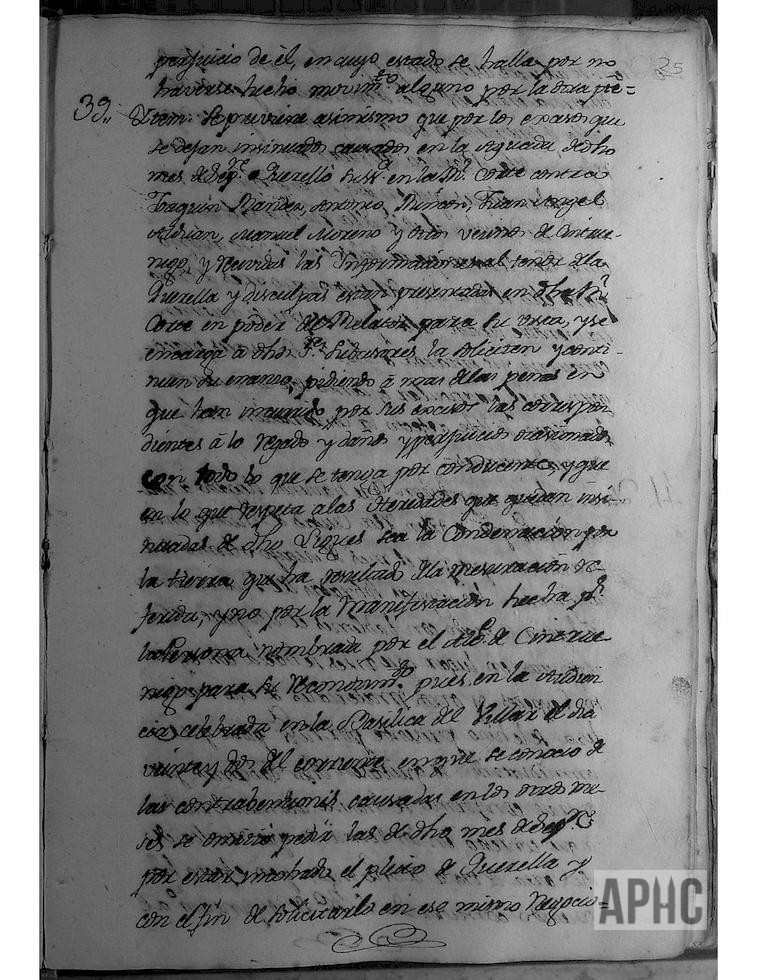 25
perjuicio de él, en cuyo estado se halla por no
haverse hecho movim.to alguno por la otra pte=
39. Ytem. Se previene asimismo que por los excesos que
se dejan insinuados causados en la aguada de dho
mes de Sep.re Querelló su Sr. en la Rl. Corte contra
Joaquin Antonio Rincon, Juan Angel
Adrian, Manuel Moreno y otros vecinos de Cintrue-
nigo, y recividas las Informaciones al tenor de la
Querella y disculpas estan presentadas en dha Rl.
Corte en poder del Relator para su vista, y se
encarga a dhos Sres. Subcesores la soliciten y conti-
nuen su enanzo, pidiendo à mas de las penas en
que han incurrido por sus excesos las correspon
dientes à lo regado y daños y perjuicios ocasionados
con todo lo que se tenga por conducente, y que
en lo que respeta a las Heredades que quedan insi-
nuadas de dho sea la Condenacion por
la tierra que ha resultado de la mesuracion re-
ferida, y no por la Manifestacion hecha pr.
la Persona nombrada por el Alc.e de Cintrue-
nigo para su Reconocim.to pues en la Audien
cia celebrada en la Basilica del Villar el dia
veinte y dos del corriente en que se conocio de
las contrabenciones causadas en los otros me-
ses se omitió pedir las de dho mes de Sep.re
por estar yntentado el pleito de Querella y
con el fin de solicitarlo en ese mismo Negocio=
APHC